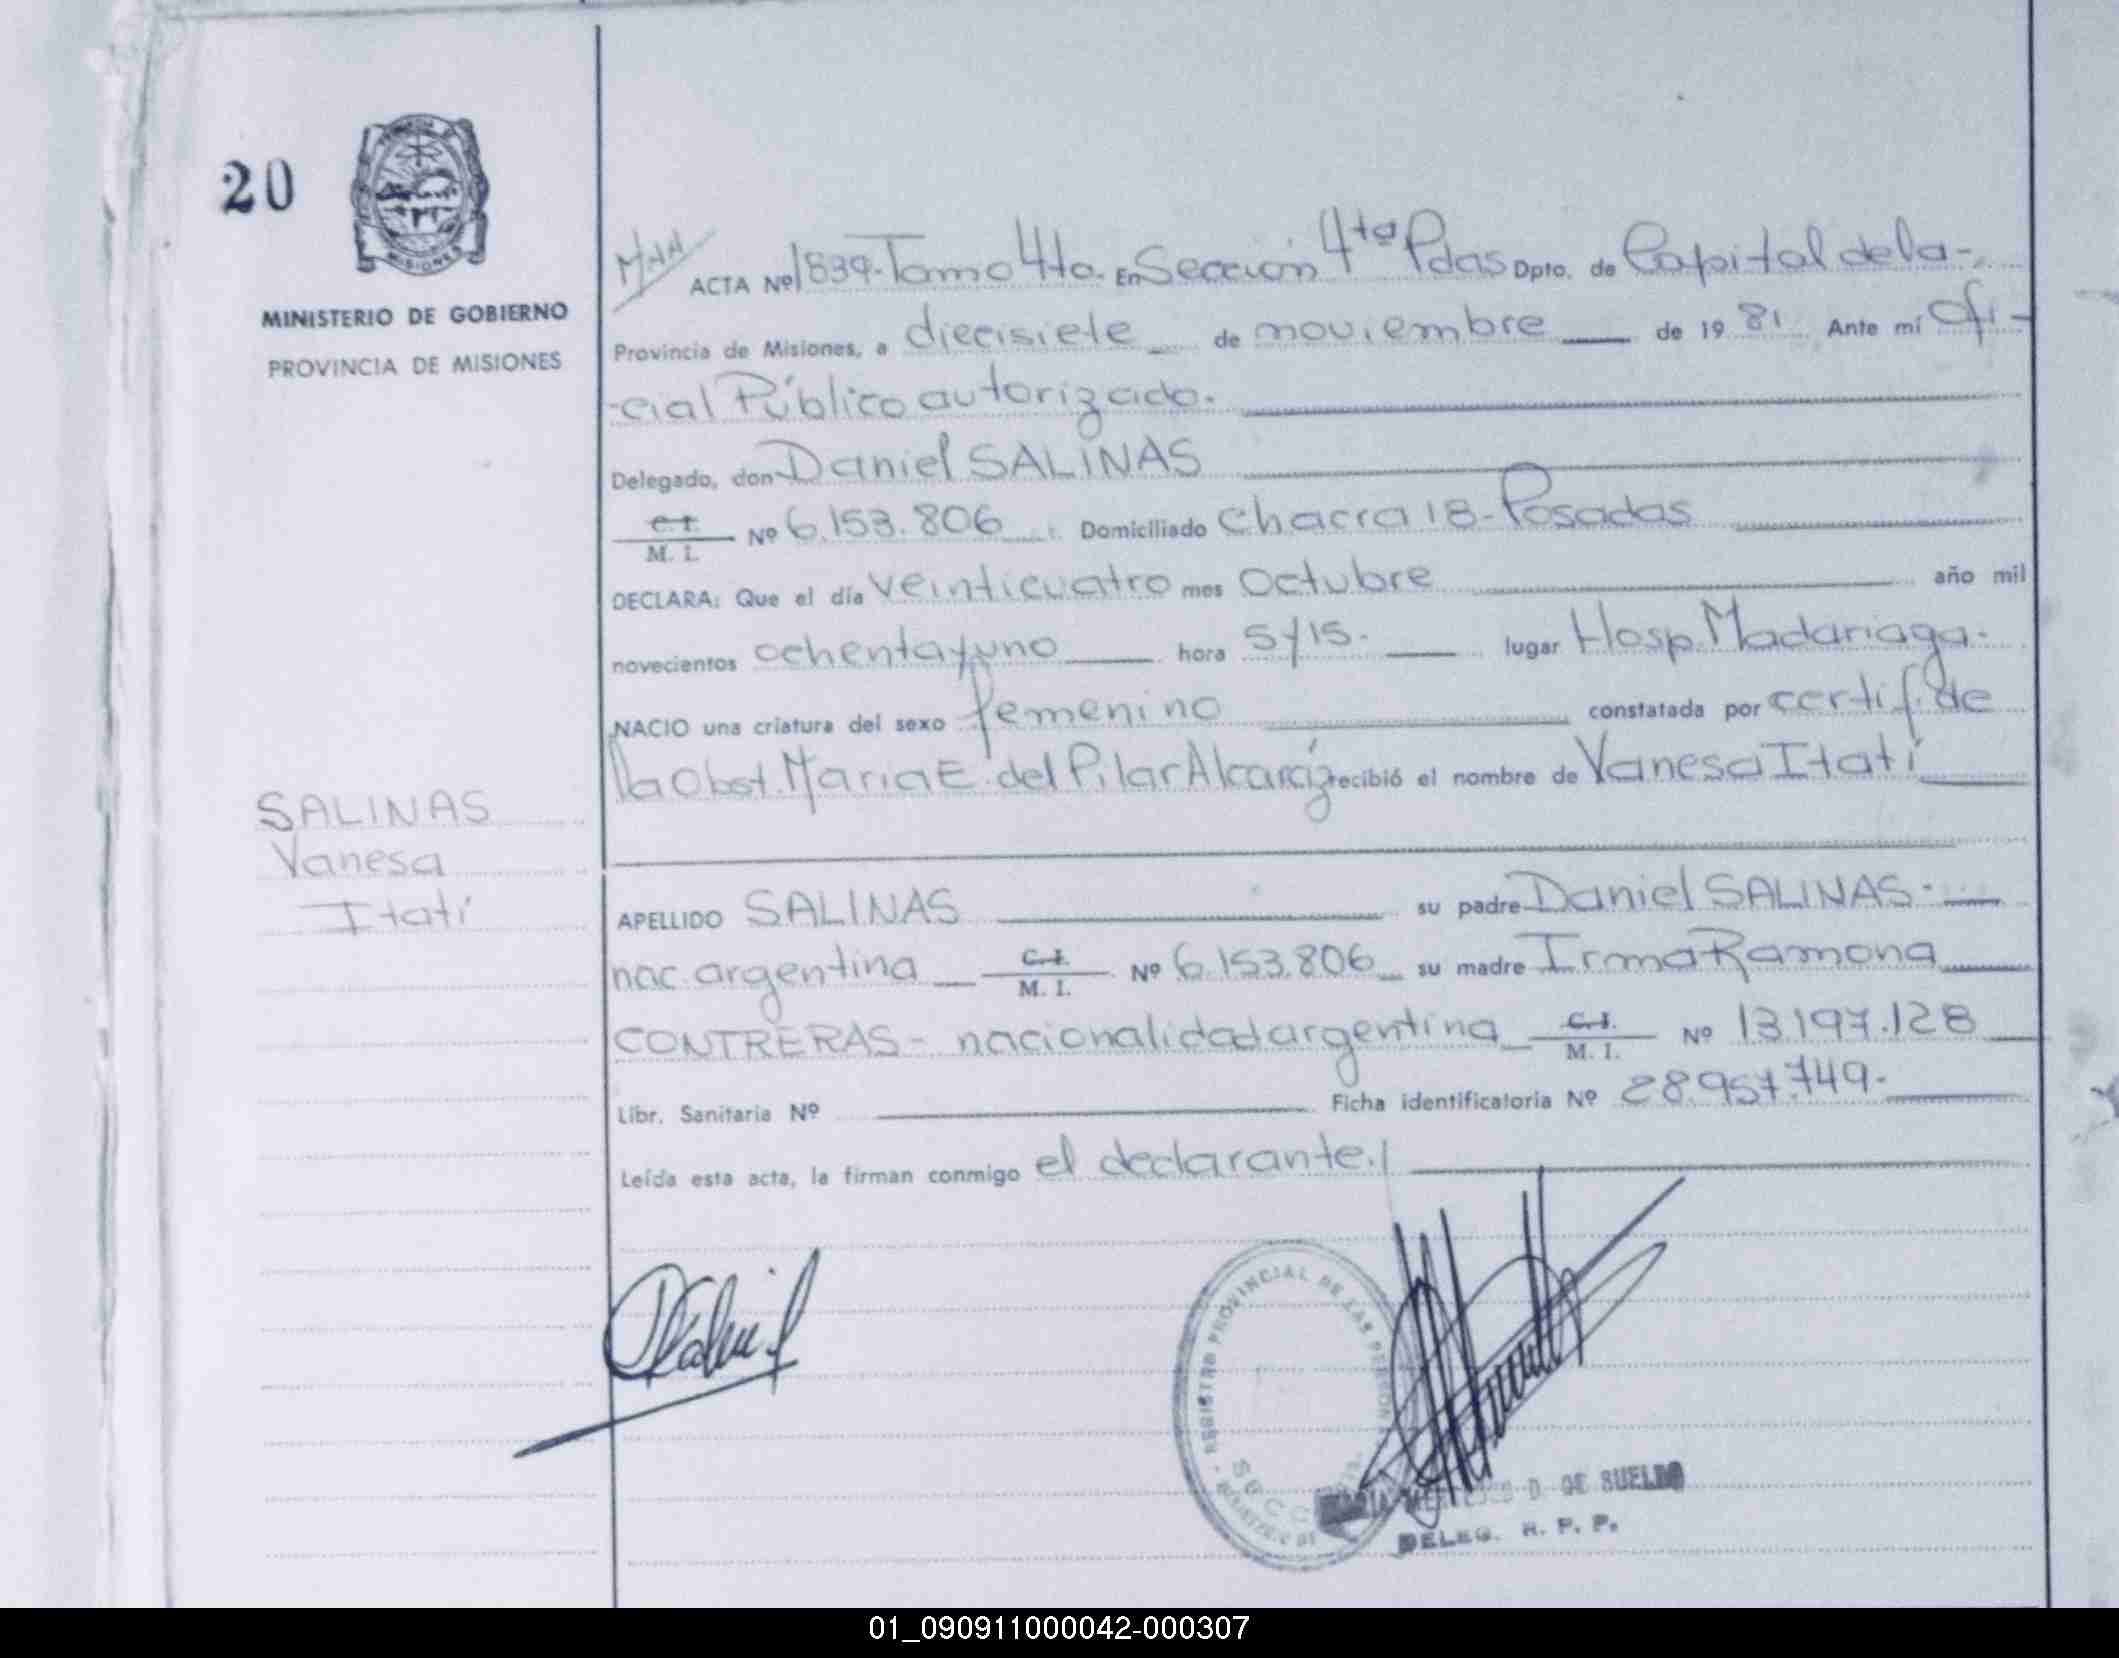 20
MISIONES
MINISTERIO DE GOBIERNO
PROVINCIA DE MISIONES
ACTA Nº 1839. Tomo 4to. En Sección 4ta Pdas Dpto. de Capital de la-
Provincia de Misiones, a diecisiete de noviembre de 1981 Ante mí Ofi-
-cial Público autorizado.
Delegado, don Daniel SALINAS
C. I.
M. I. Nº 6.153.806 Domiciliado Chacra 18-Posadas
DECLARA: Que el día veinticuatro mes Octubre año mil
novecientos ochenta y uno hora 5/15. lugar Hosp. Madariaga.
NACIO una criatura del sexo femenino constatada por certif. de
la Obst. María E. del Pilar Alcaráz recibió el nombre de Vanesa Itatí
SALINAS
Vanesa
Itatí
APELLIDO SALINAS su padre Daniel SALINAS.
nac. argentina C. I.
M. I. Nº 6.153.806 su madre Irma Ramona
CONTRERAS- nacionalidad argentina C. I.
M. I. Nº 13.197.128
Libr. Sanitaria Nº Ficha identificatoria Nº 28.957.749-
Leída esta acta, la firman conmigo el declarante./
REGISTRO PROVINCIAL DE LAS PERSONAS
D. DE SUELDO
DELEG. R. P. P.
01_090911000042-000307